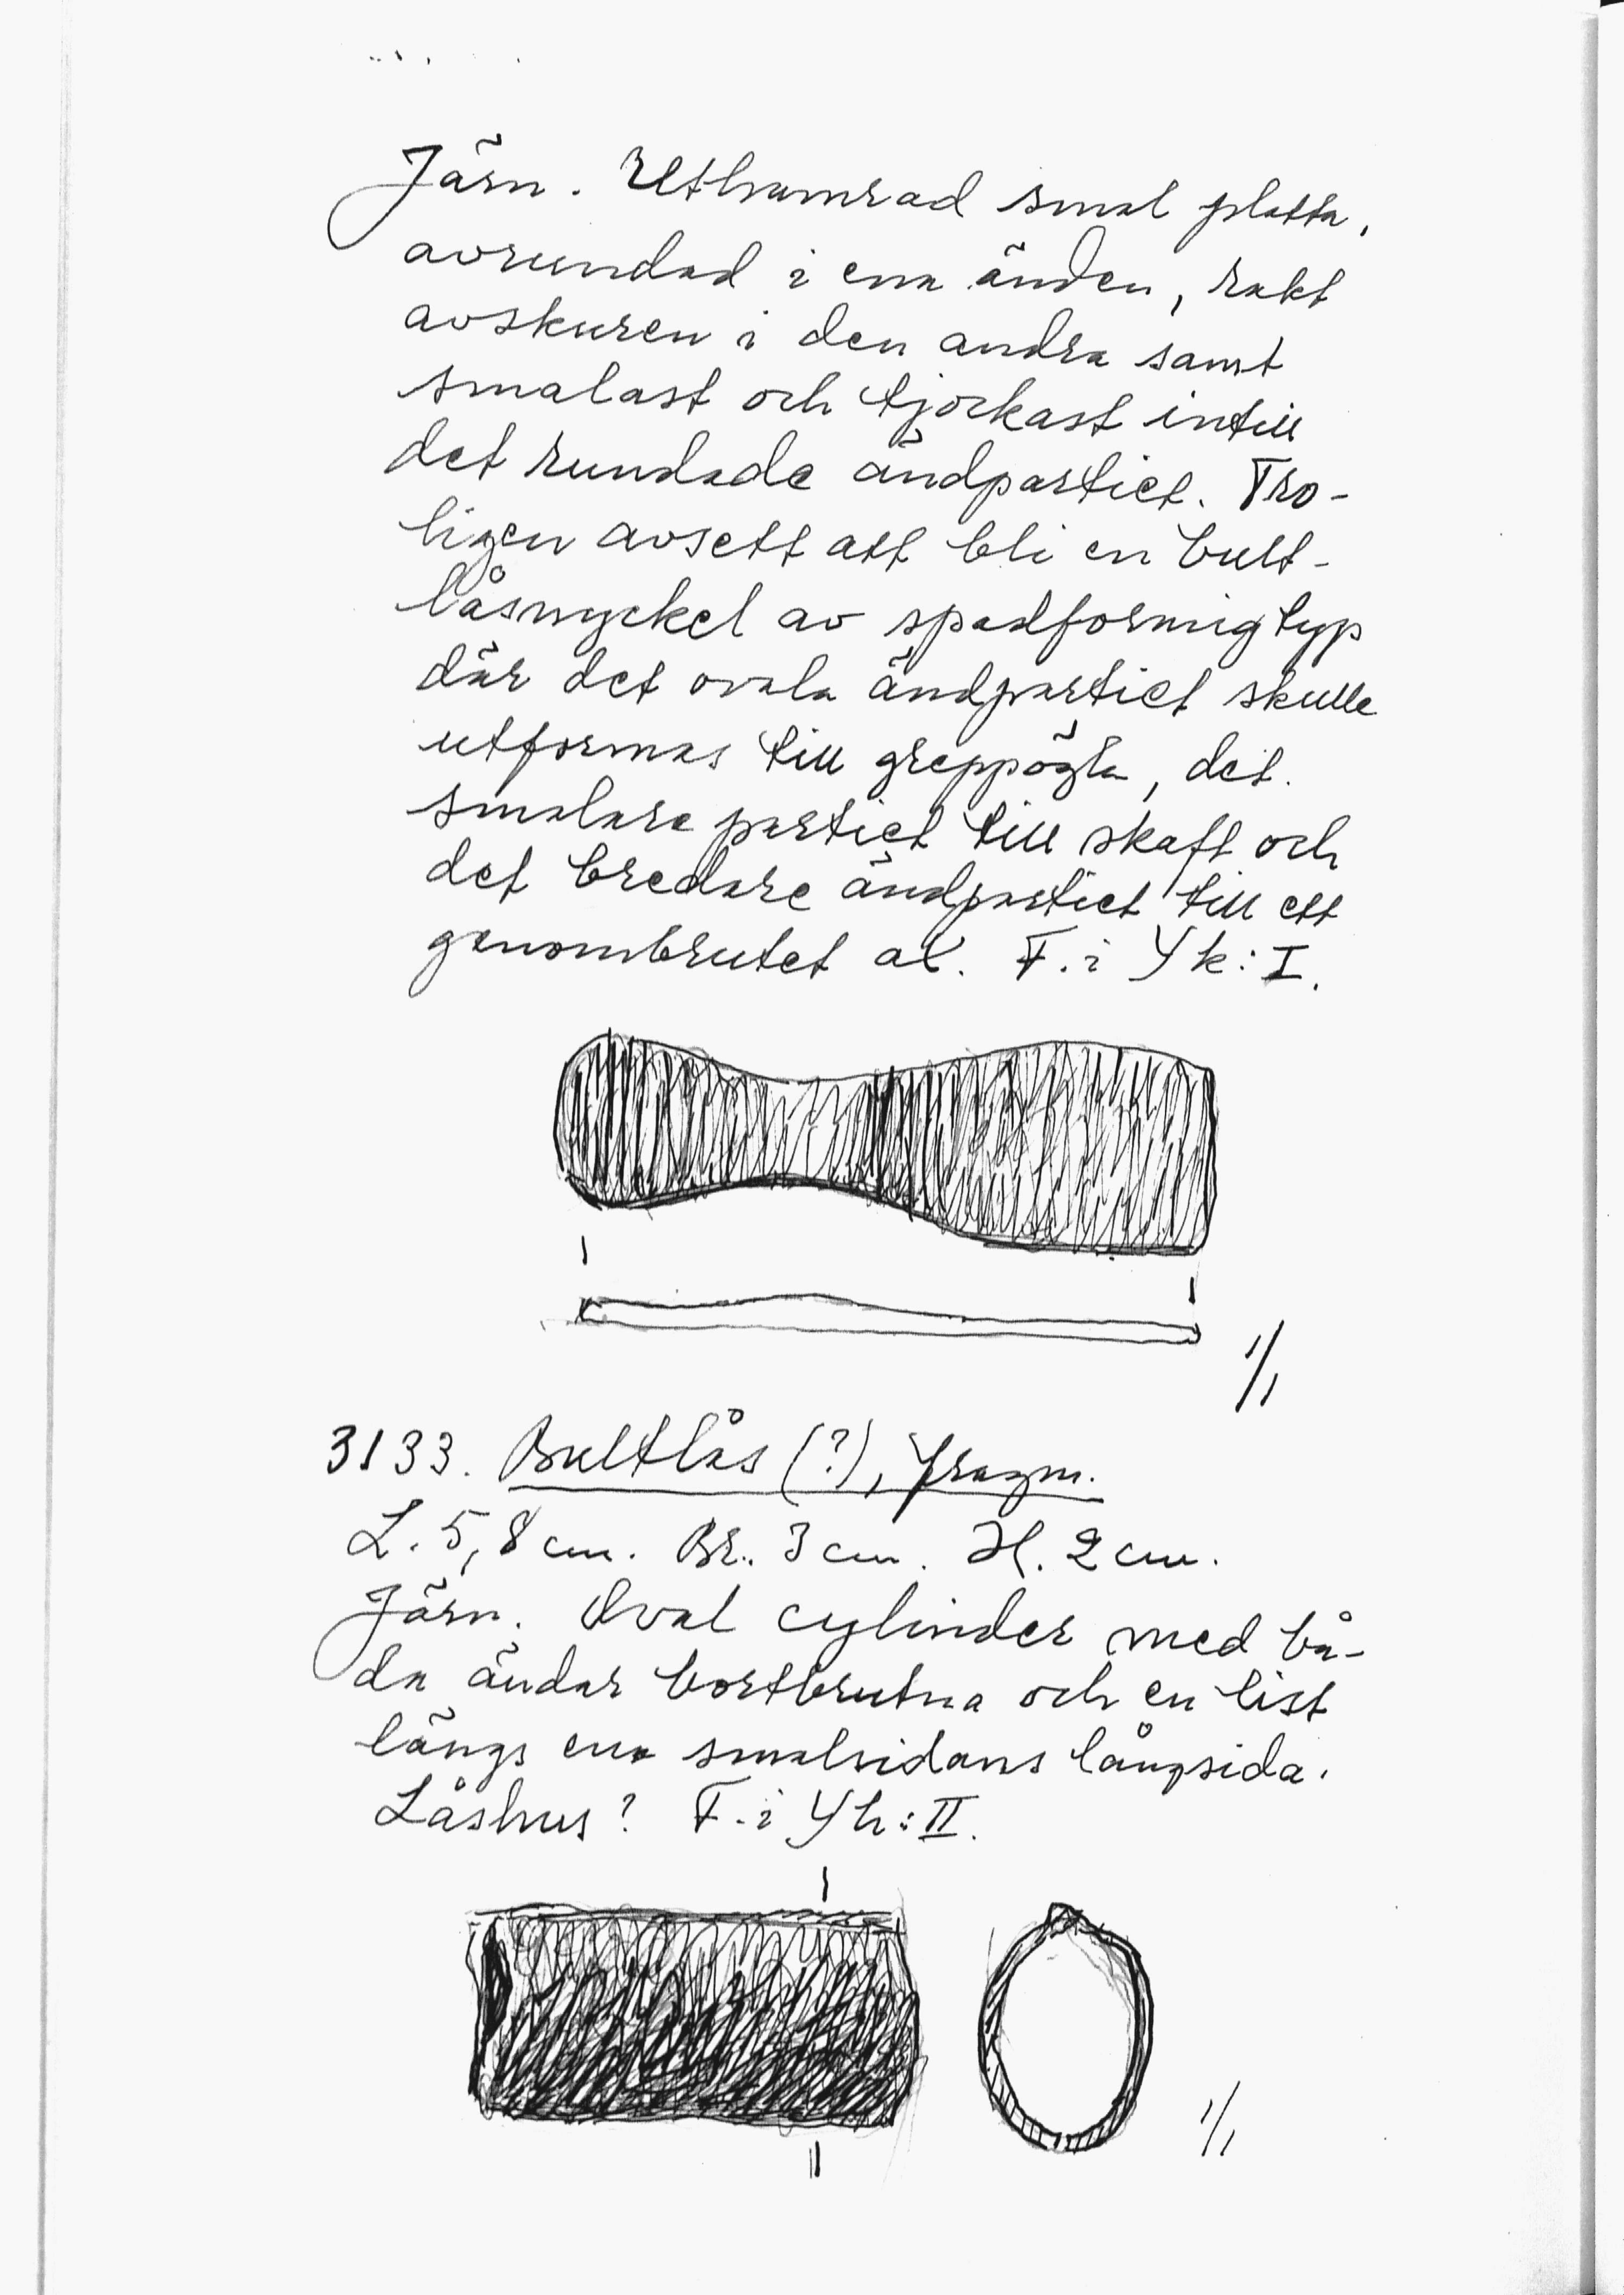 Järn. Uthamrad smal platta,
avrundad i ena änden, rakt
avskuren i den andra samt
smalast och tjockast intill
det rundade ändpartiet. Tro-
ligen avsett att bli en bult-
låsnyckel av spadformig typ
där det ovala ändpartiet skulle
utformas till greppögla, det
smalare partiet till skaft och
det bredare ändpartiet till ett
genombrutet ax. F. i Yk: I.
1/1
3133. Bultlås (?), fragm.
L. 5,8 cm. Br. 3 cm. H. 2 cm.
Järn. Oval cylinder med bå-
da ändar bortbrutna och en list
längs ena smalsidans långsida.
Låshus? F. i Yh: II.
1/1